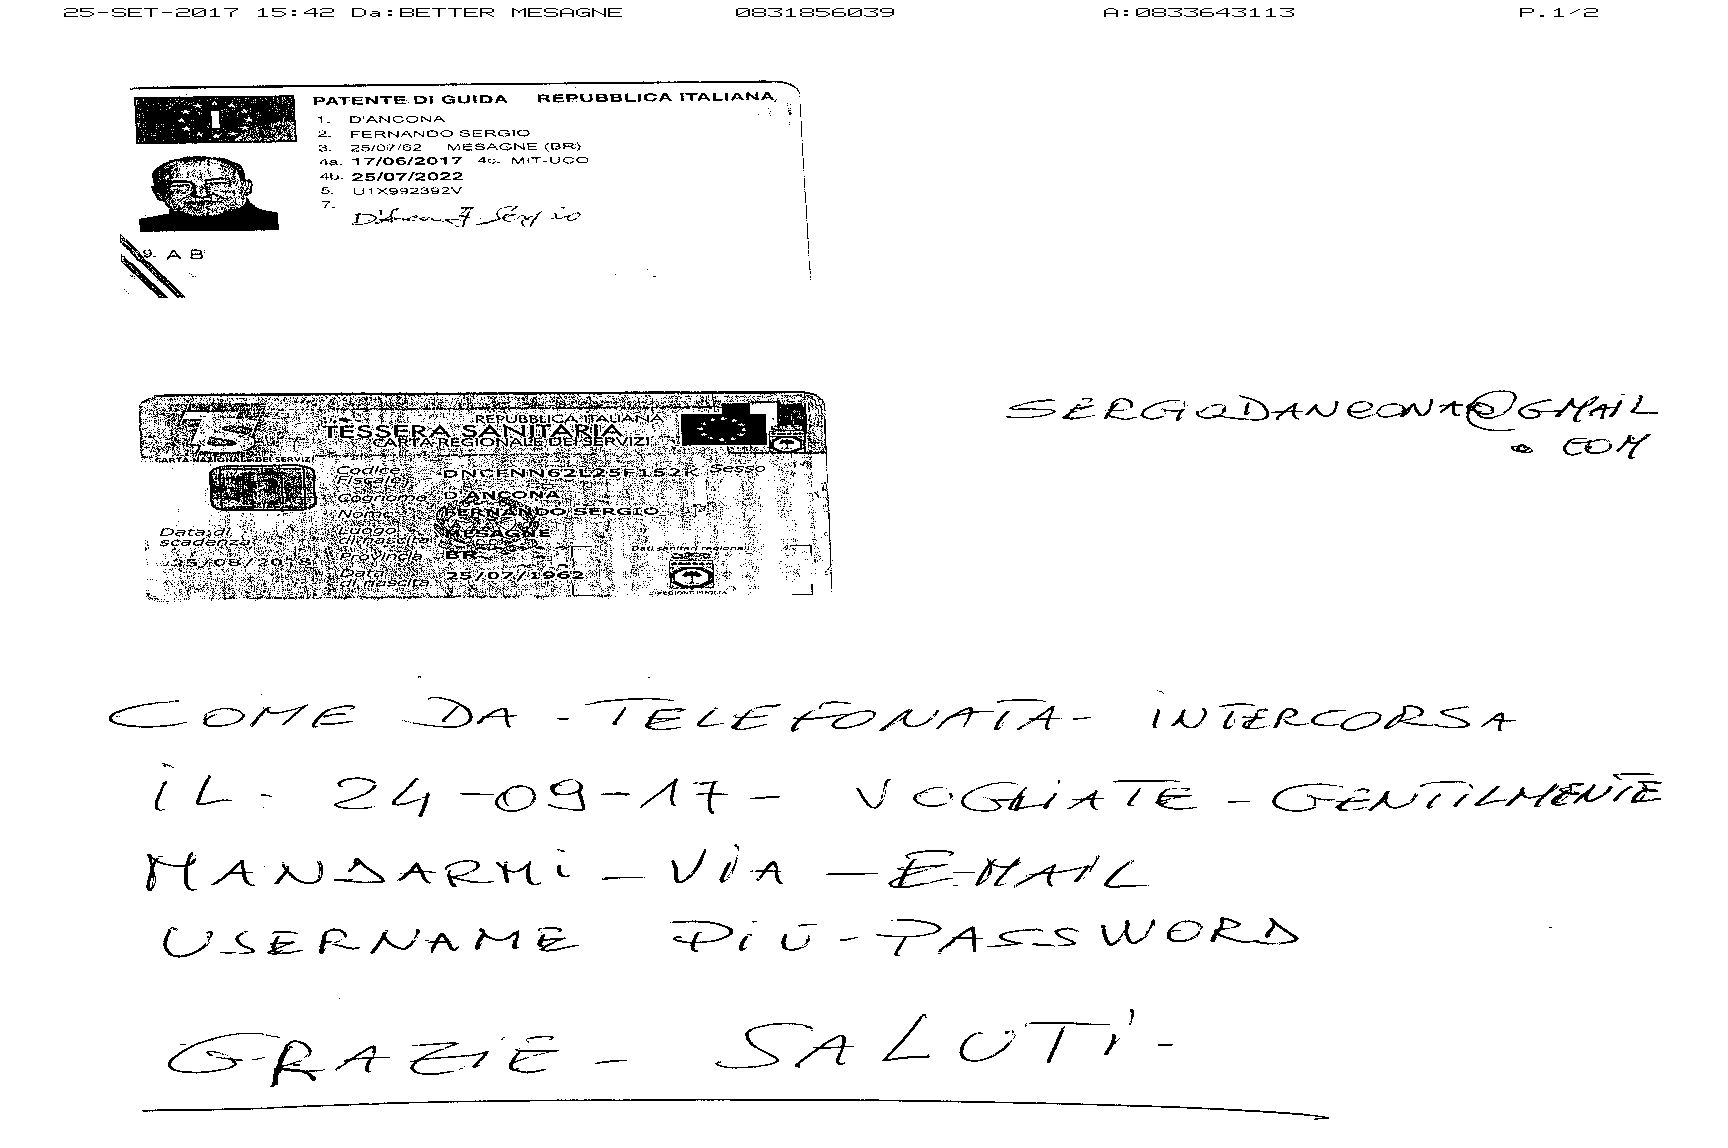 25-SET-2017 15:42 Da:BETTER MESAGNE 0831856039 A:0833643113 P.1/2
PATENTE DI GUIDA REPUBBLICA ITALIANA
1. D'ANCONA
2. FERNANDO SERGIO
3. 25/07/62 MESAGNE (BR)
4a. 17/06/2017 4c. MIT-UCO
4b. 25/07/2022
5. U1X992392V
7.
9. A B
REPUBBLICA ITALIANA
TESSERA SANITARIA
CARTA REGIONALE DEI SERVIZI
CARTA NAZIONALE DEI SERVIZI
Codice Fiscale DNCFNN62L25F152K Sesso
Cognome D'ANCONA
Nome FERNANDO SERGIO
Luogo di nascita MESAGNE
Provincia BR
Data di nascita 25/07/1962
Data di scadenza
Dati sanitari regionali
SERGIODANCONA@GMAIL
.COM
COME DA - TELEFONATA - INTERCORSA
IL - 24-09-17 - VOGLIATE - GENTILMENTE
MANDARMI - VIA - E-MAIL
USERNAME PIÙ - PASSWORD
GRAZIE - SALUTI -